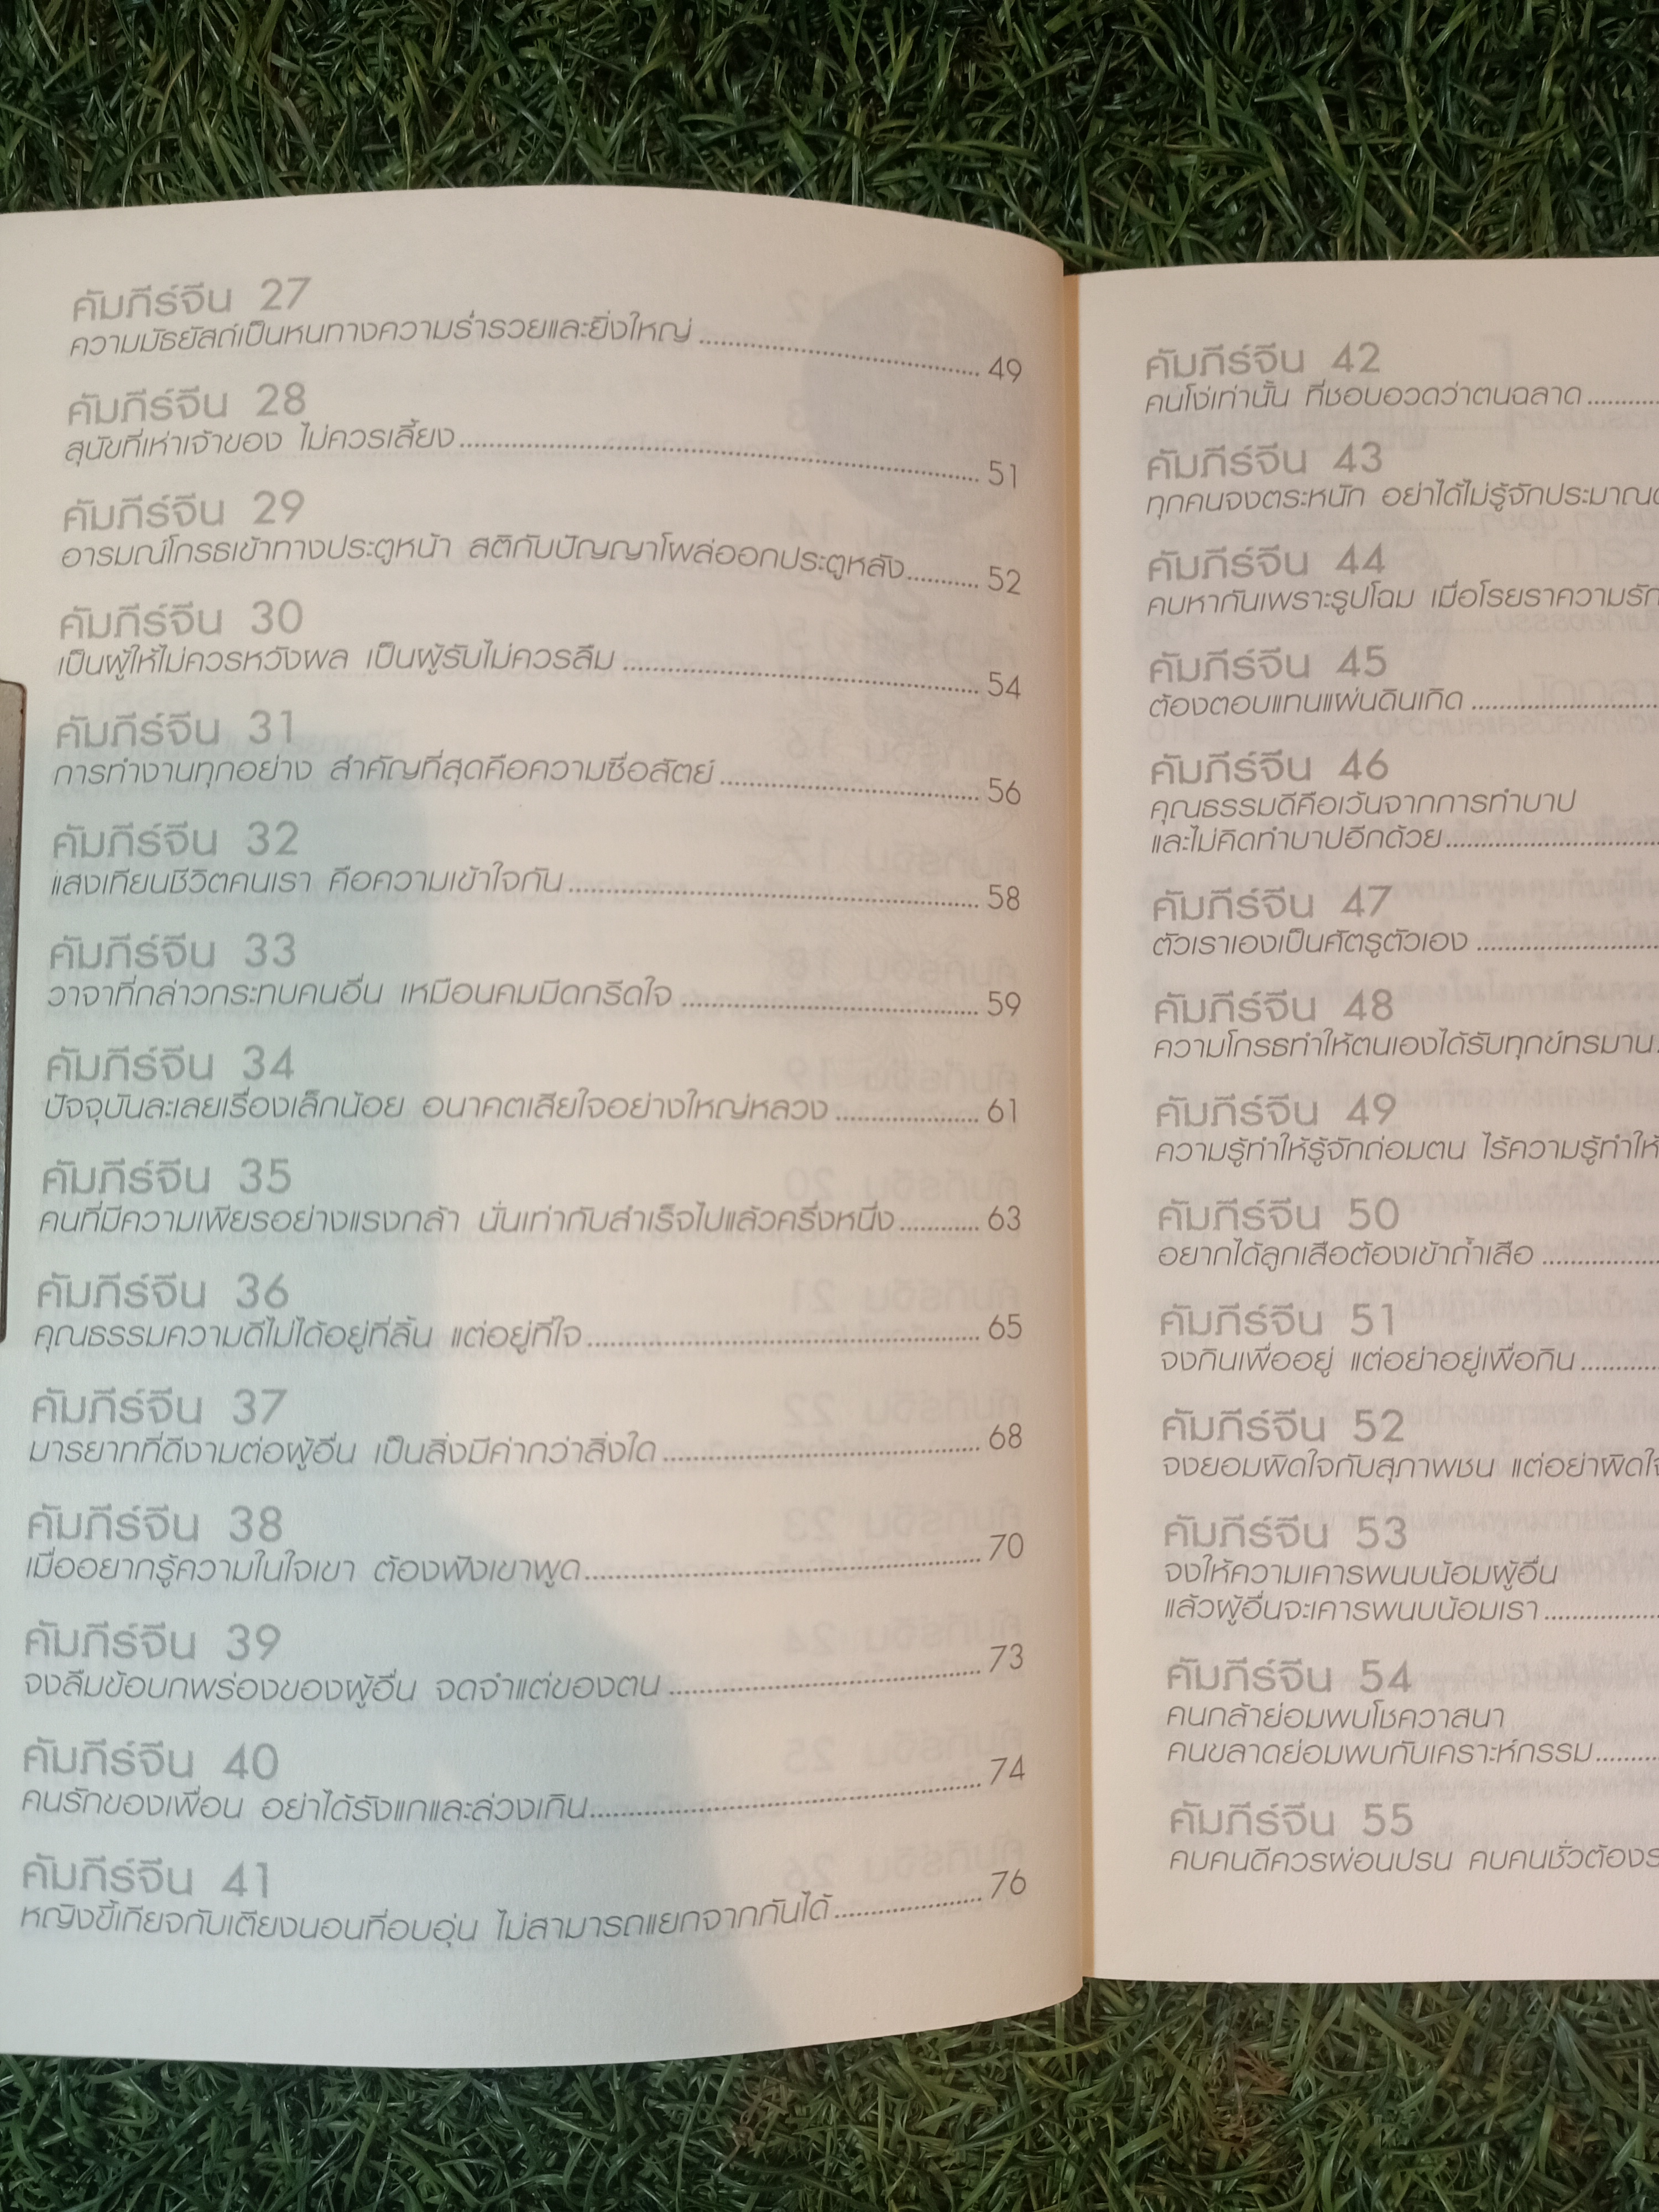 คัมภีร์จีน 27
ความมัธยัสถ์เป็นหนทางความร่ำรวยและยิ่งใหญ่ 49
คัมภีร์จีน 28
สุนัขที่เห่าเจ้าของ ไม่ควรเลี้ยง 51
คัมภีร์จีน 29
อารมณ์โกรธเข้าทางประตูหน้า สติกับปัญญาโผล่ออกประตูหลัง 52
คัมภีร์จีน 30
เป็นผู้ให้ไม่ควรหวังผล เป็นผู้รับไม่ควรลืม 54
คัมภีร์จีน 31
การทำงานทุกอย่าง สำคัญที่สุดคือความซื่อสัตย์ 56
คัมภีร์จีน 32
แสงเทียนชีวิตคนเรา คือความเข้าใจกัน 58
คัมภีร์จีน 33
วาจาที่กล่าวกระทบคนอื่น เหมือนคมมีดกรีดใจ 59
คัมภีร์จีน 34
ปัจจุบันละเลยเรื่องเล็กน้อย อนาคตเสียใจอย่างใหญ่หลวง 61
คัมภีร์จีน 35
คนที่มีความเพียรอย่างแรงกล้า นั่นเท่ากับสำเร็จไปแล้วครึ่งหนึ่ง 63
คัมภีร์จีน 36
คุณธรรมความดีไม่ได้อยู่ที่ลิ้น แต่อยู่ที่ใจ 65
คัมภีร์จีน 37
มารยาทที่ดีงามต่อผู้อื่น เป็นสิ่งมีค่ากว่าสิ่งใด 68
คัมภีร์จีน 38
เมื่ออยากรู้ความในใจเขา ต้องฟังเขาพูด 70
คัมภีร์จีน 39
จงลืมข้อบกพร่องของผู้อื่น จดจำแต่ของตน 73
คัมภีร์จีน 40
คนรักของเพื่อน อย่าได้รังแกและล่วงเกิน 74
คัมภีร์จีน 41
หญิงขี้เกียจกับเตียงนอนที่อบอุ่น ไม่สามารถแยกจากกันได้ 76
คัมภีร์จีน 42
คนโง่เท่านั้น ที่ชอบอวดว่าตนฉลาด
คัมภีร์จีน 43
ทุกคนจงตระหนัก อย่าได้ไม่รู้จักประมาณ
คัมภีร์จีน 44
คบหากันเพราะรูปโฉม เมื่อโรยราความรัก
คัมภีร์จีน 45
ต้องตอบแทนแผ่นดินเกิด
คัมภีร์จีน 46
คุณธรรมดีคือเว้นจากการทำบาป
และไม่คิดทำบาปอีกด้วย
คัมภีร์จีน 47
ตัวเราเองเป็นศัตรูตัวเอง
คัมภีร์จีน 48
ความโกรธทำให้ตนเองได้รับทุกข์ทรมาน
คัมภีร์จีน 49
ความรู้ทำให้รู้จักถ่อมตน ไร้ความรู้ทำให้
คัมภีร์จีน 50
อยากได้ลูกเสือต้องเข้าถ้ำเสือ
คัมภีร์จีน 51
จงกินเพื่ออยู่ แต่อย่าอยู่เพื่อกิน
คัมภีร์จีน 52
จงยอมผิดใจกับสุภาพชน แต่อย่าผิดใจ
คัมภีร์จีน 53
จงให้ความเคารพนบน้อมผู้อื่น
แล้วผู้อื่นจะเคารพนบน้อมเรา
คัมภีร์จีน 54
คนกล้าย่อมพบโชควาสนา
คนขลาดย่อมพบกับเคราะห์กรรม
คัมภีร์จีน 55
คบคนดีควรผ่อนปรน คบคนชั่วต้อง